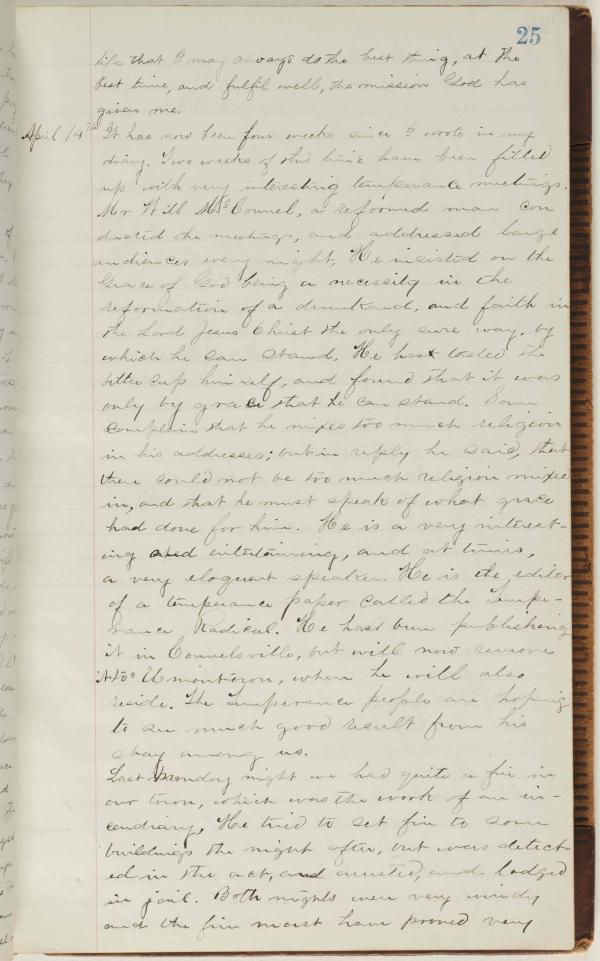 25
life, that I may always do the best thing, at the
best time, and fulfil well, the mission God has
given me.
April 14th It has now been four weeks since I wrote in my
diary. Two weeks of this time have been filled
up with very interesting temperance meetings.
Mr Will McConnel, a reformed man con
ducted the meetings, and addressed large
audiences every night. He insisted on the
Grace of God being a necessity in the
reformation of a drunkard, and faith in
the Lord Jesus Christ the only sure way, by
which he can stand. He has tasted the
bitter cup himself, and found that it was
only by grace that he can stand. Some
complain that he mixes too much religion
in his addresses; but in reply he said, that
there could not be too much religion mixed
in, and that he must speak of what grace
had done for him. He is a very interest-
ing and entertaining, and at times,
a very eloquent speaker. He is the editor
of a temperance paper called the Tempe-
rance Radical. He has been publishing
it in Connelsville, but will now remove
it to Uniontown, where he will also
reside. The temperance people are hoping
to see much good result from his
stay among us.
Last Monday night we had quite a fire in
our town, which was the work of an in-
cendiary. He tried to set fire to some
buildings the night after, but was detect
ed in the act, and arrested, and lodged
in jail. Both nights were very windy
and the fire must have proved very